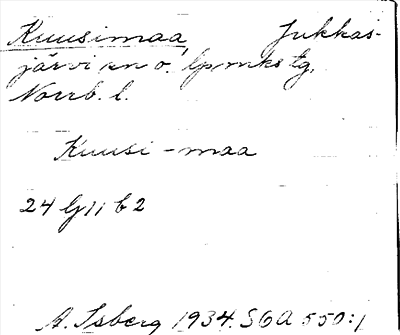 Kuusimaa Jukkas-
järvi sn o. lpmks tg,
Norrb. l.
Kuusi - maa
24
A. Isberg 1934. SOA 550:1